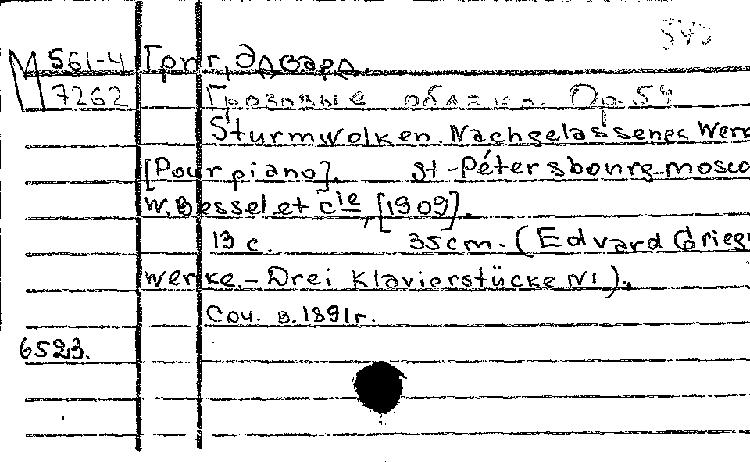 М 561-4 Григ, Эдвард.
7262 Грозовые облака. Op. 54
Sturmwolken. Nachgelassenes Werk
[Pour piano]. St-Pétersbourg-Mosco
W. Bessel et cie, [1909].
13 с. 35 cm. (Edvard Grieg
Werke.- Drei Klavierstücke N1).
Соч. в. 1891г.
6523.